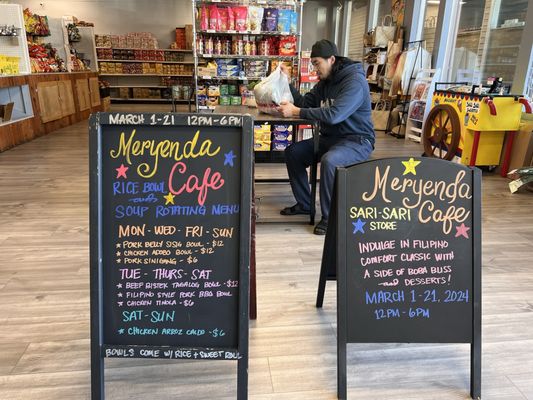 MARCH 1-21 12PM-6PM
MERYENDA
CAFE
RICE BOWL
and
SOUP ROTATING MENU
MON-WED-FRI-SUN
PORK BELLY SISIG BOWL - $12
CHICKEN ADOBO BOWL - $12
PORK SINIGANG - $6
TUE-THURS-SAT
BEEF BISTEK TAGALOG BOWL $12
FILIPINO STYLE PORK BBQ BOWL
CHICKEN TINOLA - $6
SAT-SUN
CHICKEN ARROZ CALDO - $6
BOWLS COME W/ RICE + SWEET ROLL
MERYENDA
SARI-SARI CAFE
STORE
INDULGE IN FILIPINO
COMFORT CLASSIC WITH
A SIDE OF BOBA BLISS
and DESSERTS!
MARCH 1-21, 2024
12PM-6PM